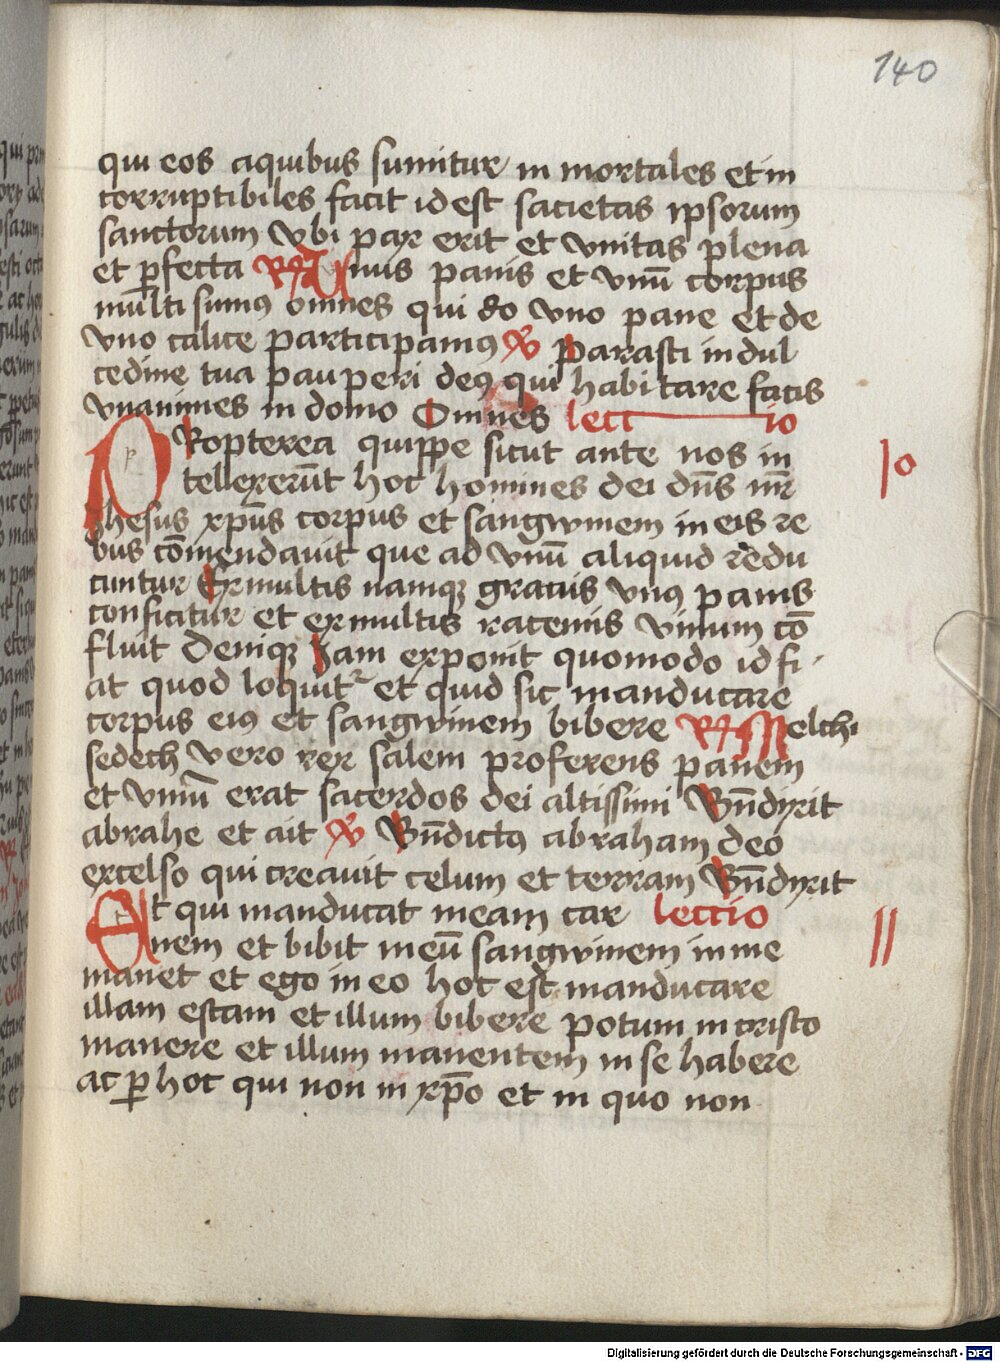 140
qui eos aquibus sumitur in mortales et in
corruptibiles facit id est sacietas ipsorum
sanctorum Vbi pax erit et vnitas plena
et ꝑfecta R Vnus panis et vnū corpus
multi sumꝰ omnes qui do vno pane et de
vno calice participamꝰ ℣ Parasti in dul
cedine tua pauperi deꝰ qui habitare facis
vnanimes in domo Omnes lectio
PRopterea quippe sicut ante nos in 10
tellexerūt hoc homines dei dn̄s nr̄
Jhesus xp̄us corpus et sangwinem in eis re
bus cōmendauit que ad vnū aliquid redu
cuntur Ex multis namqꝫ granis vnꝰ panis
conficitur et ex multis racemis vinum cō
fluit Deniqꝫ Jam exponit quomodo id fi
at quod loquitᷣ et quid sic manducare
corpus eiꝰ et sangwinem bibere R Melchi
sedech vero rex salem proferens panem
et vinū erat sacerdos dei altissimi Bn̄dixit
abrahe et ait ℣ Bn̄dictꝰ abraham deo
excelso qui creauit celum et terram Bn̄dixit
Et qui manducat meam car lectio 11
nem et bibit meū sangwinem in me
manet et ego in eo hoc est manducare
illam escam et illum bibere potum in cristo
manere et illum manentem in se habere
ac ꝑ hoc qui non in xp̄o et in quo non
Digitalisierung gefördert durch die Deutsche Forschungsgemeinschaft - DFG